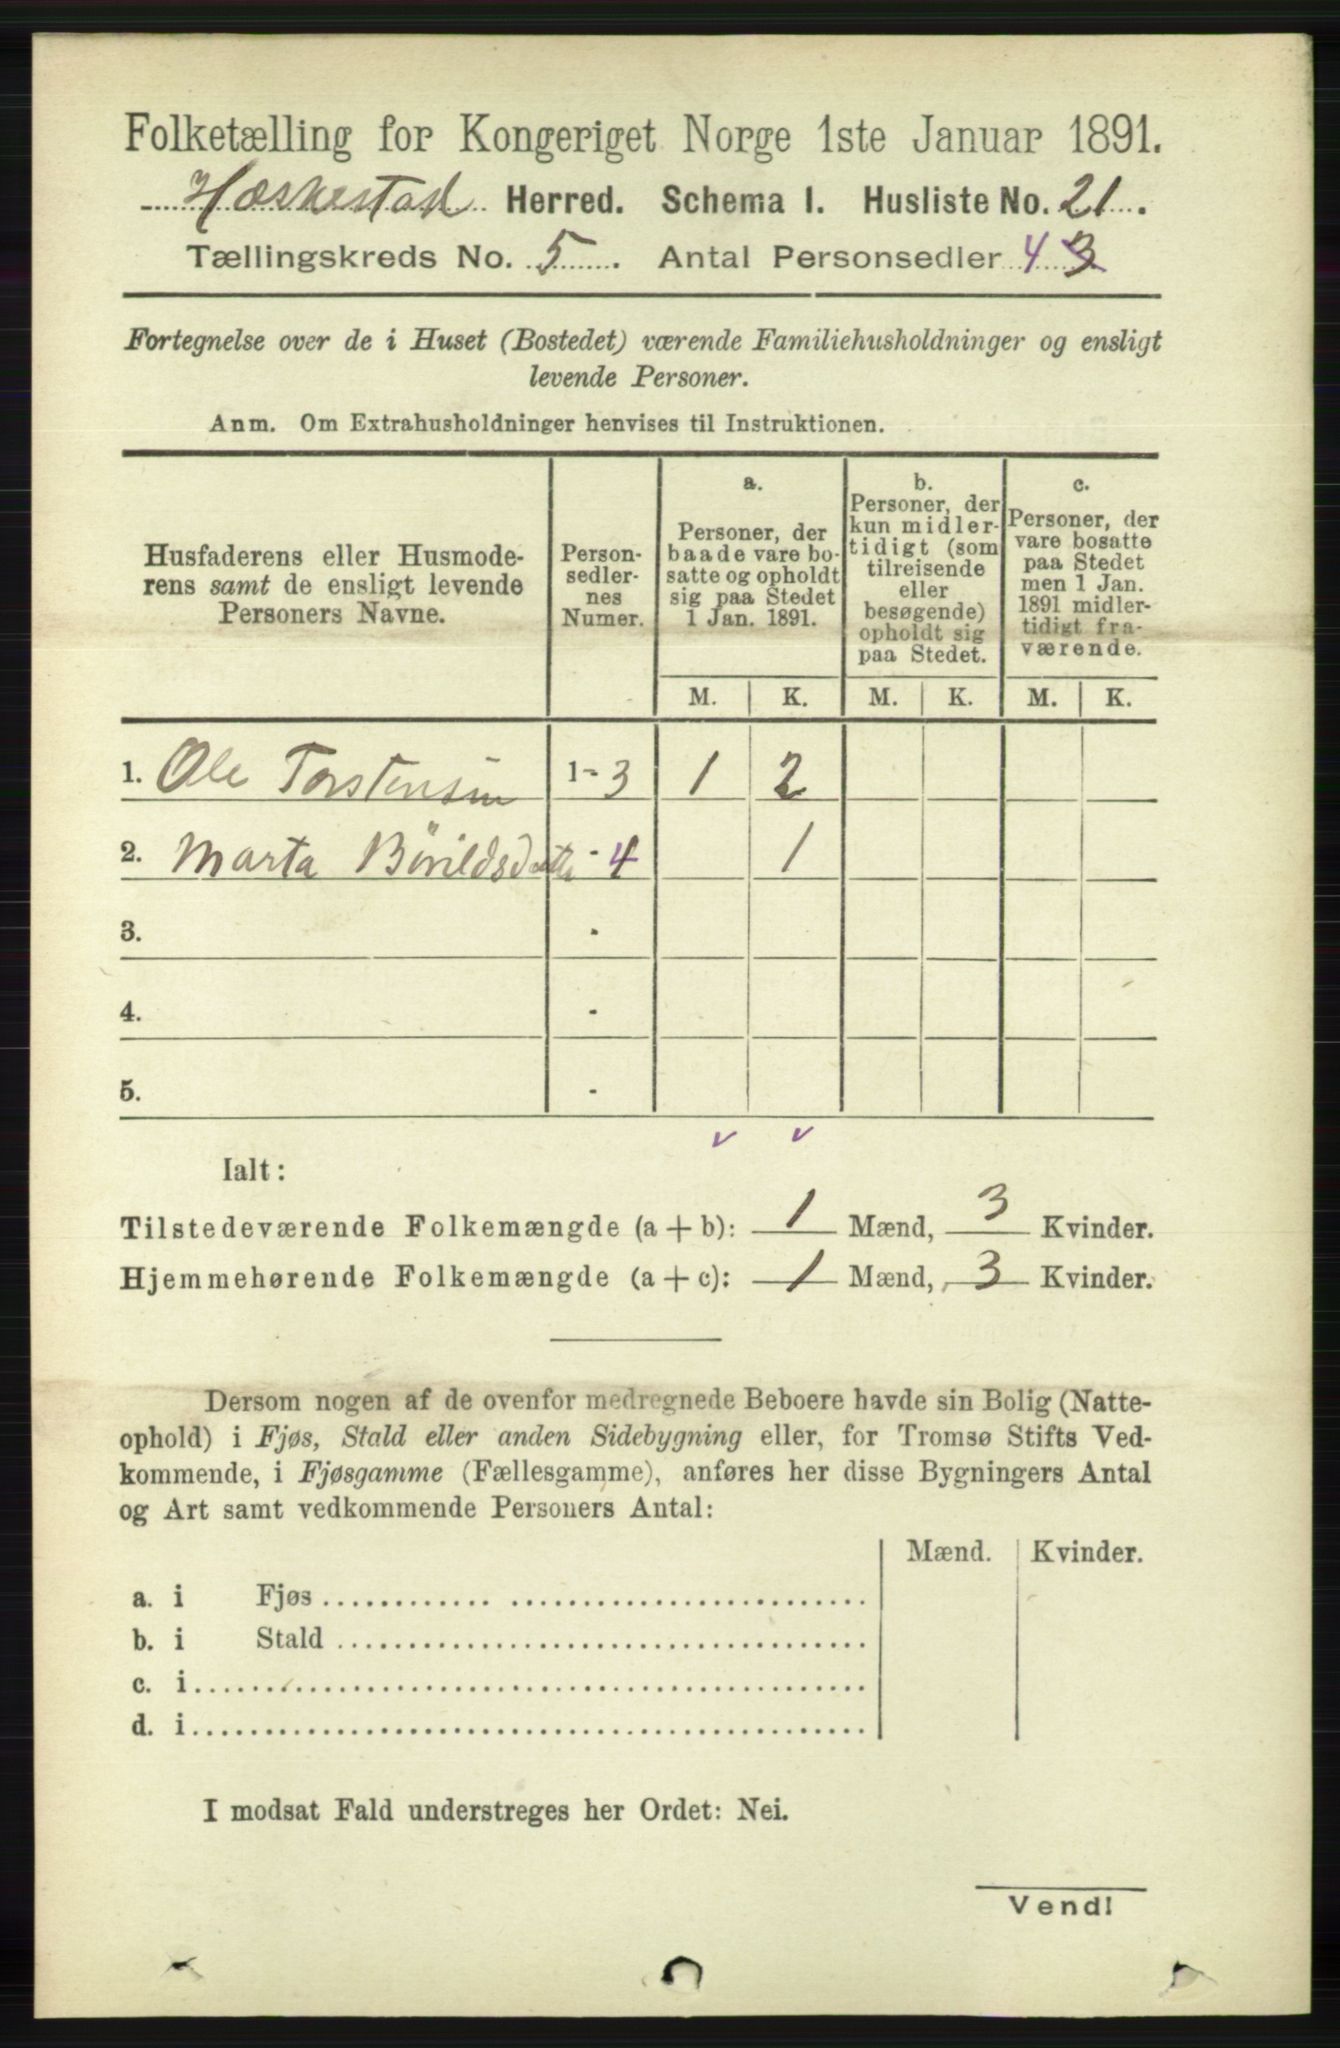 Folketælling for Kongeriget Norge 1ste Januar 1891.
Heskestad Herred. Schema I. Husliste No. 21.
Tællingskreds No. 5. Antal Personsedler 4 3
Fortegnelse over de i Huset (Bostedet) værende Familiehusholdninger og ensligt
levende Personer.
Anm. Om Extrahusholdninger henvises til Instruktionen.
Husfaderens eller Husmode-
rens samt de ensligt levende
Personers Navne.
Person-
sedler-
nes
Numer.
a.
Personer, der
baade vare bo-
satte og opholdt
sig paa Stedet
1 Jan. 1891.
b.
Personer, der
kun midler-
tidigt (som
tilreisende
eller
besøgende)
opholdt sig
paa Stedet.
c.
Personer, der
vare bosatte
paa Stedet
men 1 Jan.
1891 midler-
tidigt fra-
værende.
M. K. M. K. M. K.
1. Ole Torstensen 1-3 1 2
2. Marta Børildsdatter - 4 1
3. -
4. -
5. -
v v
Ialt:
Tilstedeværende Folkemængde (a + b): 1 Mænd, 3 Kvinder.
Hjemmehørende Folkemængde (a + c): 1 Mænd, 3 Kvinder.
Dersom nogen af de ovenfor medregnede Beboere havde sin Bolig (Natte-
ophold) i Fjøs, Stald eller anden Sidebygning eller, for Tromsø Stifts Ved-
kommende, i Fjøsgamme (Fællesgamme), anføres her disse Bygningers Antal
og Art samt vedkommende Personers Antal:
Mænd. Kvinder.
a. i Fjøs
b. i Stald
c. i
d. i
I modsat Fald understreges her Ordet: Nei.
Vend!